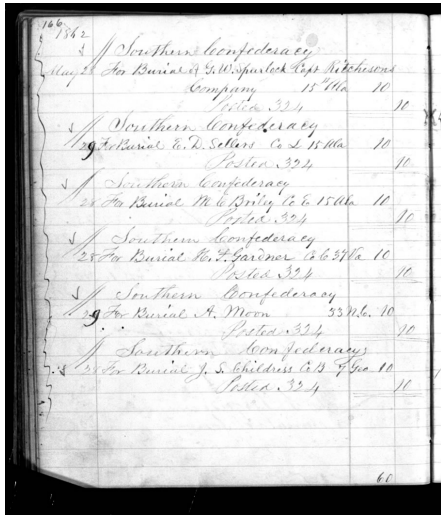 166
1862
" Southern Confederacy
May 28 For Burial of G. W. Spurlock Capt Ritchesons
Company 15" Ala 10
Posted 324 10
" Southern Confederacy
29 For Burial E. D. Sellers Co L 15 Ala 10
Posted 324 10
" Southern Confederacy
28 For Burial M. C Briley Co E 15 Ala 10
Posted 324 10
" Southern Confederacy
28 For Burial H. F. Gardner Co C 37 Va 10
Posted 324 10
" Southern Confederacy
29 For Burial A. Moon 53 N.C. 10
Posted 324 10
" Southern Confederacy
28 For Burial J. S. Childress Co B 7 Geo 10
Posted 324 10
60